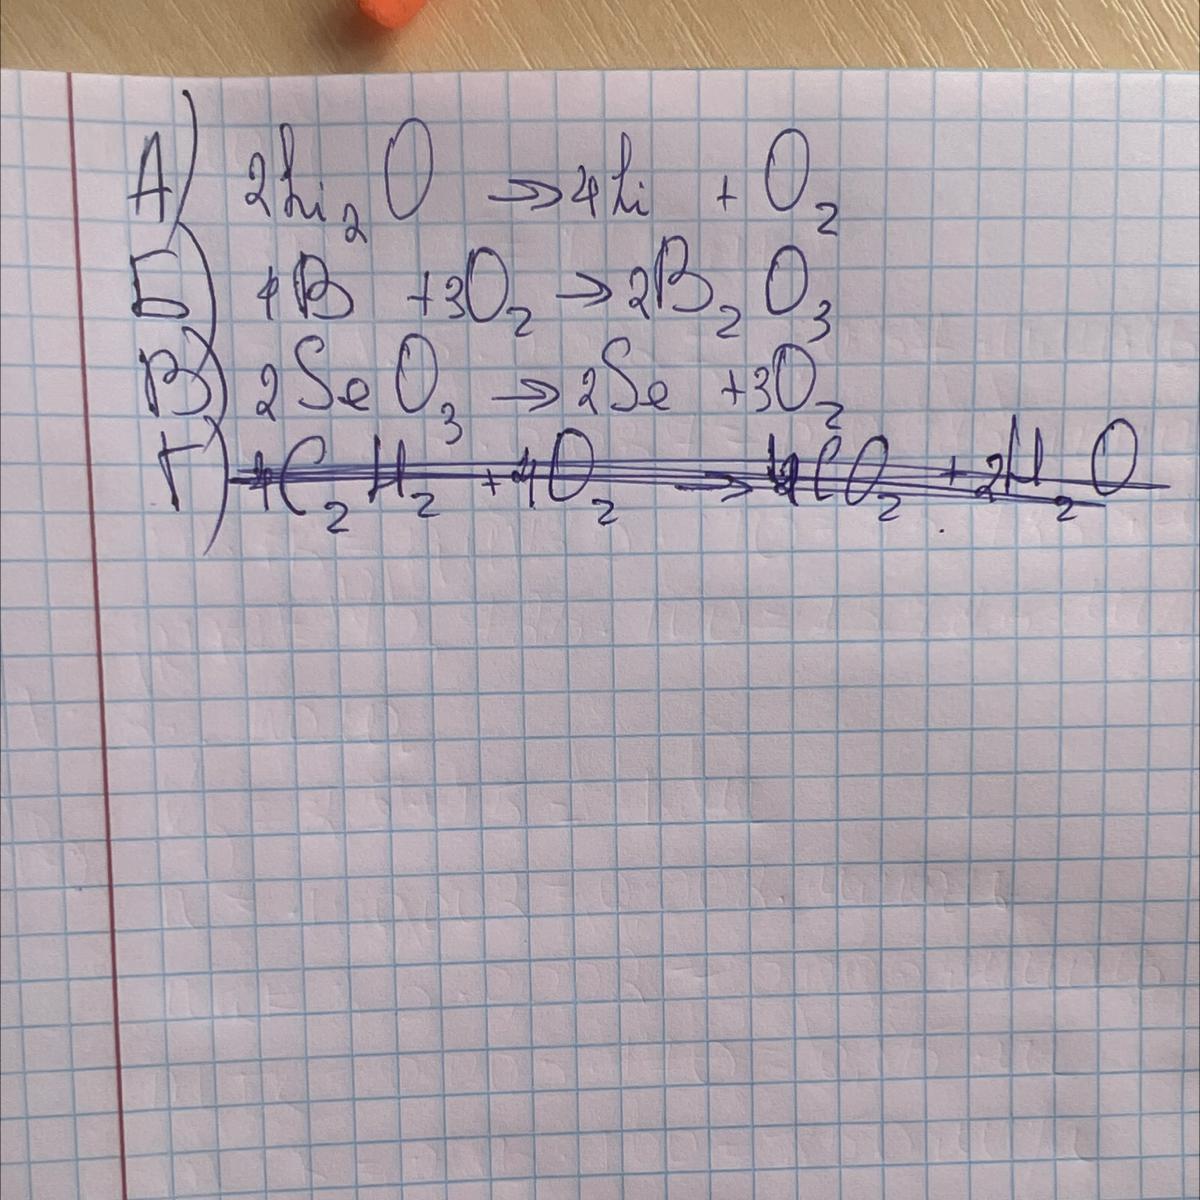 А) 2Li₂O → 4Li + O₂
Б) 4B + 3O₂ → 2B₂O₃
В) 2SeO₃ → 2Se + 3O₂
Г) 4C₂H₂ + 4O₂ → 4CO₂ + 2H₂O